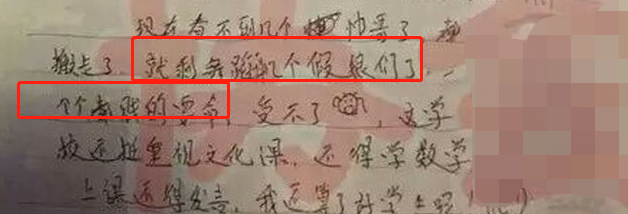 现在看不到几个帅哥了
搬走了,就剩舞蹈几个假娘们了,一
个个骚的要命,受不了,这学
校还挺重视文化课,还得学数学
上课还得发言,我还算了好学生呢!